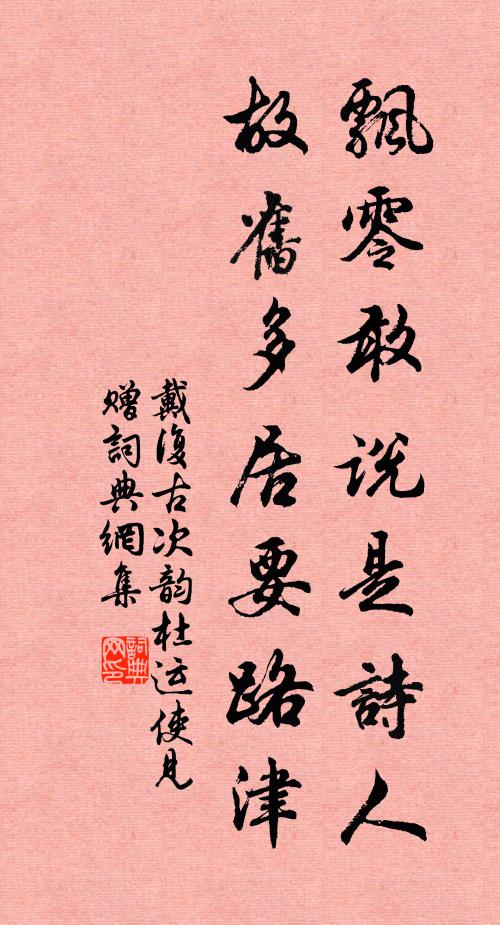 飄零敢説是詩人
故舊多居要路津
戴復古次韵杜运使見
赠詞典網集
詞典网印